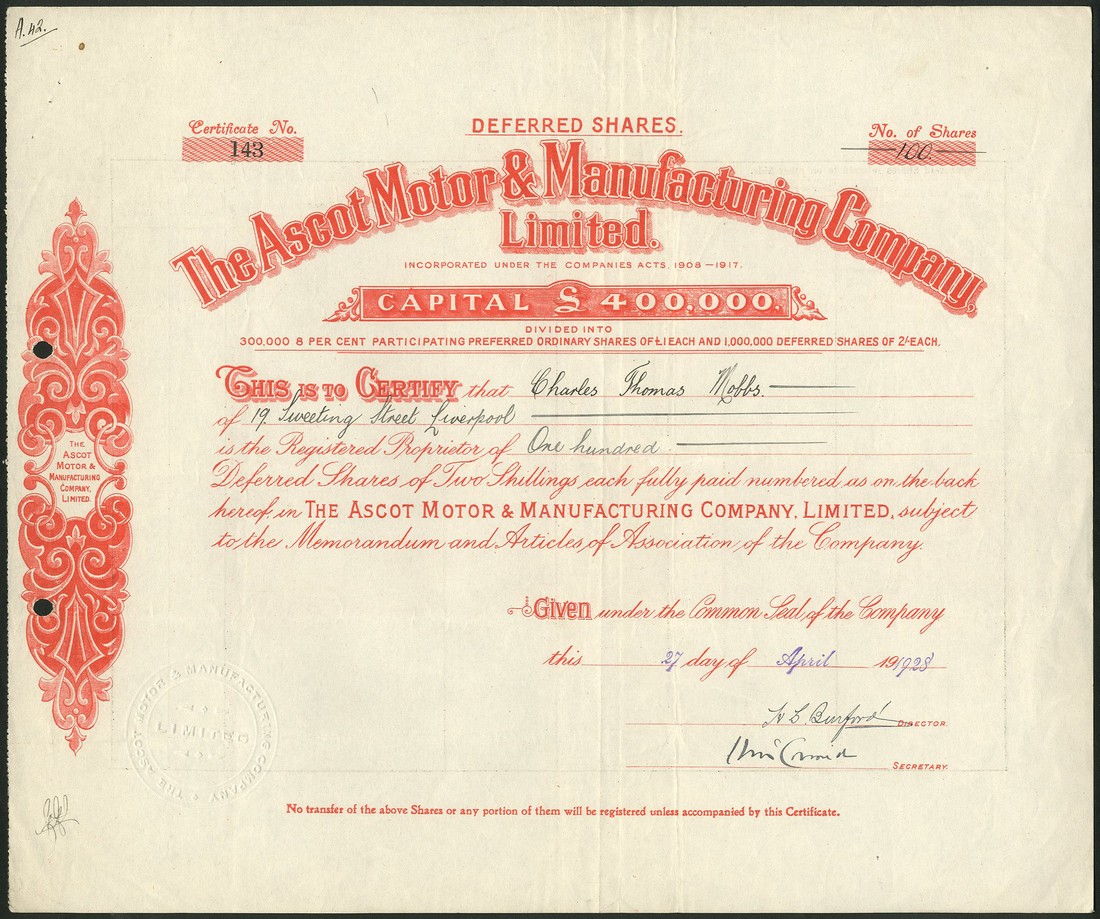 A.42.
DEFERRED SHARES.
Certificate No.
143
No. of Shares
100.
The Ascot Motor & Manufacturing Company,
Limited.
INCORPORATED UNDER THE COMPANIES ACTS, 1908-1917.
CAPITAL £400,000.
DIVIDED INTO
300,000 8 PER CENT PARTICIPATING PREFERRED ORDINARY SHARES OF £1 EACH AND 1,000,000 DEFERRED SHARES OF 2/- EACH.
THIS IS TO CERTIFY that Charles Thomas Mobbs.
of 19. Sweeting Street Liverpool
is the Registered Proprietor of One hundred
Deferred Shares of Two Shillings each fully paid numbered as on the back
hereof in THE ASCOT MOTOR & MANUFACTURING COMPANY, LIMITED, subject
to the Memorandum and Articles of Association of the Company.
THE
ASCOT
MOTOR &
MANUFACTURING
COMPANY,
LIMITED.
Given under the Common Seal of the Company
this 27 day of April 191928
H B. Burford DIRECTOR.
SECRETARY.
THE ASCOT MOTOR & MANUFACTURING COMPANY
LIMITED
No transfer of the above Shares or any portion of them will be registered unless accompanied by this Certificate.